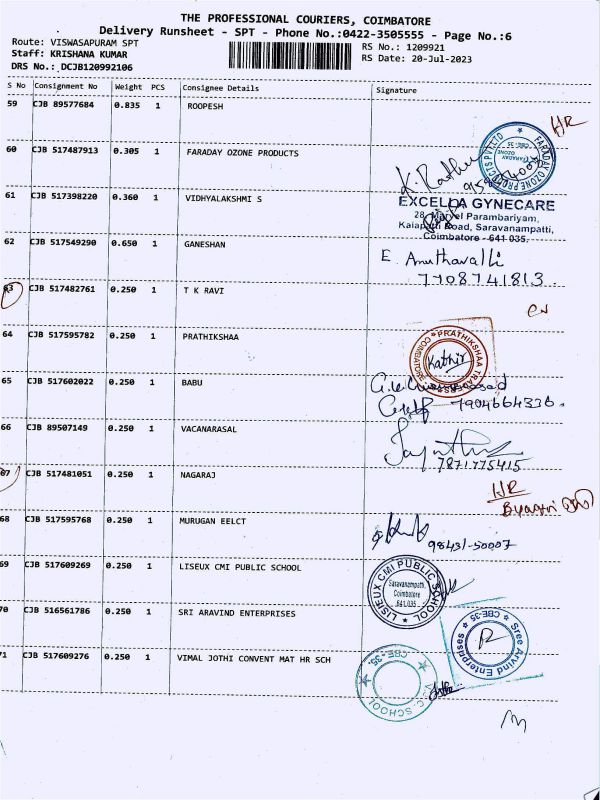 THE PROFESSIONAL COURIERS, COIMBATORE
Delivery Runsheet - SPT - Phone No.:0422-3505555 - Page No.:6
Route: VISWASAPURAM SPT
RS No.: 1209921
Staff: KRISHANA KUMAR
RS Date: 20-Jul-2023
DRS No.: DCJB120992106
S No Consignment No Weight PCS Consignee Details Signature
59 CJB 89577684 0.835 1 ROOPESH
HR
60 CJB 517487913 0.305 1 FARADAY OZONE PRODUCTS
FARADAY OZONE PRODUCTS PVT LTD
CBE-35
FARADAY OZONE
61 CJB 517398220 0.360 1 VIDHYALAKSHMI S
EXCELLA GYNECARE
28, Marvel Parambariyam,
Kalapatti Road, Saravanampatti,
Coimbatore - 641 035.
62 CJB 517549290 0.650 1 GANESHAN
E Amuthavalli
7708741813.
63 CJB 517482761 0.250 1 T K RAVI
64 CJB 517595782 0.250 1 PRATHIKSHAA
PRATHIKSHAA
COIMBATORE
Kathir
65 CJB 517602022 0.250 1 BABU
7904664336.
66 CJB 89507149 0.250 1 VACANARASAL
7871775415
67 CJB 517481051 0.250 1 NAGARAJ
HR
68 CJB 517595768 0.250 1 MURUGAN EELCT
98431-50007
69 CJB 517609269 0.250 1 LISEUX CMI PUBLIC SCHOOL
LISIEUX CMI PUBLIC SCHOOL
Saravanampatti,
Coimbatore
641 035
70 CJB 516561786 0.250 1 SRI ARAVIND ENTERPRISES
Sree Arvind Enterprises
CBE-35
71 CJB 517609276 0.250 1 VIMAL JOTHI CONVENT MAT HR SCH
CBE-35.
V.J.C. SCHOOL